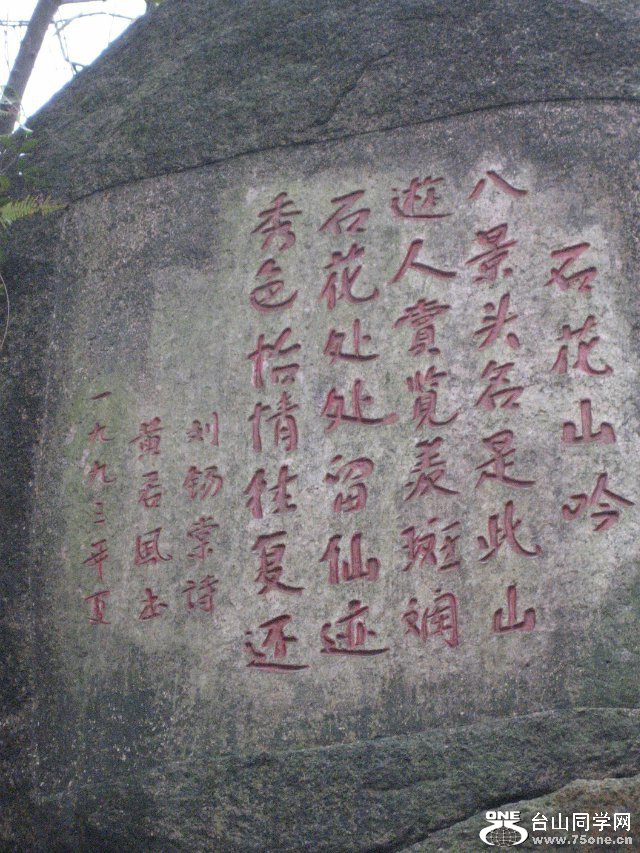 石花山吟
八景头名是此山
遊人賞览羡斑斓
石花处处留仙迹
秀色怡情往复还
刘锡棠诗
黄君凤书
一九九三年夏
ONE 台山同学网
www.75one.cn